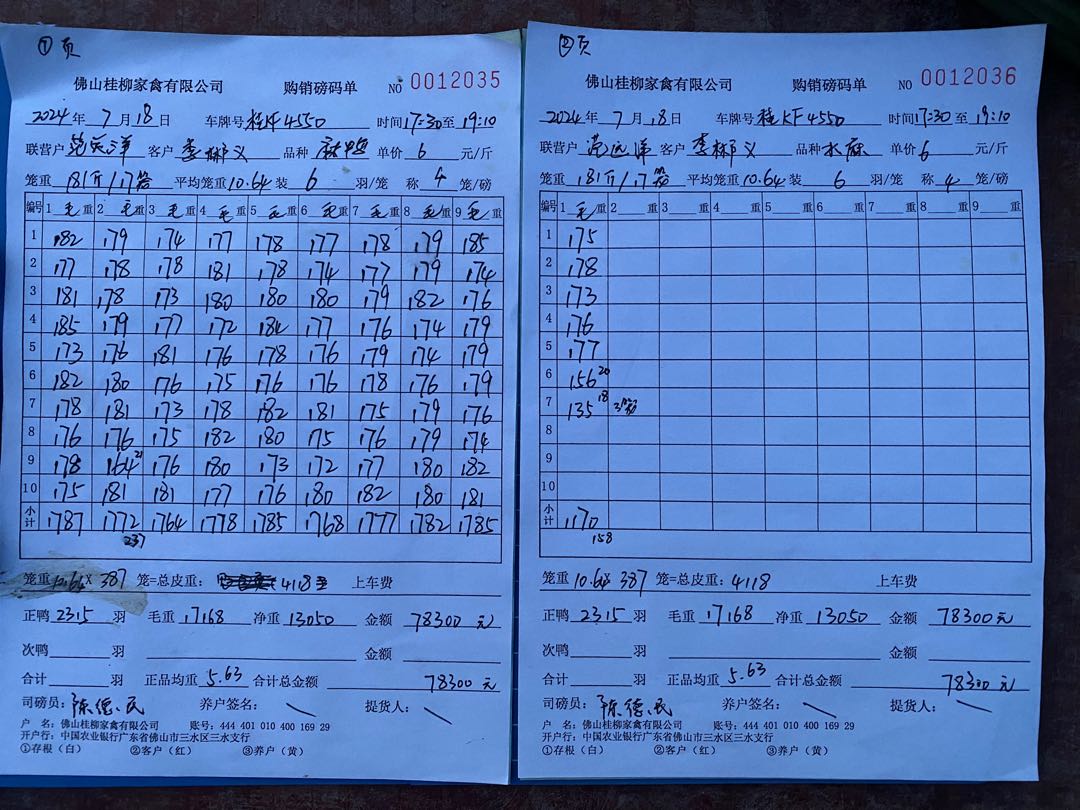 ①页
佛山桂柳家禽有限公司 购销磅码单 NO 0012035
2024年7月18日 车牌号桂KF4550 时间17:30至19:10
联营户 客户李郴义 品种麻鸭 单价6元/斤
笼重181斤/17笼 平均笼重10.64装6羽/笼 称4笼/磅
编号 1毛重 2毛重 3毛重 4毛重 5毛重 6毛重 7毛重 8毛重 9毛重
1 182 179 174 177 178 177 178 179 185
2 177 178 178 181 178 174 177 179 174
3 181 178 173 180 180 180 179 182 176
4 185 179 177 172 184 177 176 174 179
5 173 176 181 176 178 176 179 174 179
6 182 180 176 175 176 176 178 176 179
7 178 181 173 178 182 181 175 179 176
8 176 176 175 182 180 175 176 179 174
9 178 164 21 176 180 173 172 177 180 182
10 175 181 181 177 176 180 182 180 181
小计 1787 1772 1764 1778 1785 1768 1777 1782 1785
237
笼重10.64×387笼=总皮重：4118 上车费
正鸭2315羽 毛重17168 净重13050 金额78300元
次鸭 羽 金额
合计 羽 正品均重5.63 合计总金额 78300元
司磅员：陈德民 养户签名： 提货人：
户 名：佛山桂柳家禽有限公司 账号：444 401 010 400 169 29
开户行：中国农业银行广东省佛山市三水区三水支行
①存根（白） ②客户（红） ③养户（黄）
②页
佛山桂柳家禽有限公司 购销磅码单 NO 0012036
2024年7月18日 车牌号桂KF4550 时间17:30至19:10
联营户 客户李郴义 品种水麻 单价6元/斤
笼重181斤/17笼 平均笼重10.64装6羽/笼 称4笼/磅
编号 1毛重 2重 3重 4重 5重 6重 7重 8重 9重
1 175
2 178
3 173
4 176
5 177
6 156 20
7 135 18 3笼
8
9
10
小计 1170
158
笼重10.64 387笼=总皮重：4118 上车费
正鸭2315羽 毛重17168 净重13050 金额78300元
次鸭 羽 金额
合计 羽 正品均重5.63 合计总金额 78300元
司磅员：陈德民 养户签名： 提货人：
户 名：佛山桂柳家禽有限公司 账号：444 401 010 400 169 29
开户行：中国农业银行广东省佛山市三水区三水支行
①存根（白） ②客户（红） ③养户（黄）